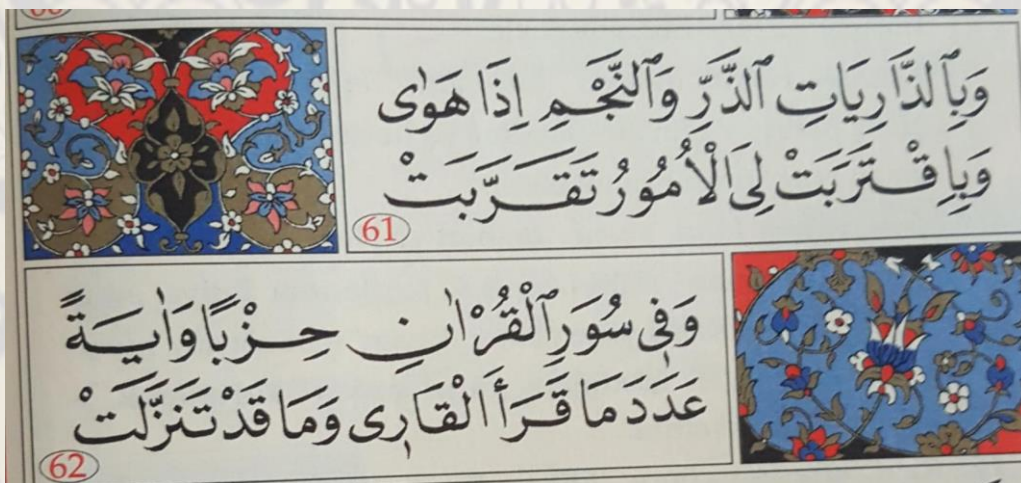 وَبِٱلذَّارِيَاتِ ٱلذَّرِّ وَٱلنَّجْمِ اِذَا هَوٰى
وَبِاِقْتَرَبَتْ لِىَ الْاُمُورُ تَقَرَّبَتْ
61
وَفِى سُوَرِ ٱلْقُرْاٰنِ حِزْبًا وَاٰيَةً
عَدَدَ مَا قَرَأَ الْقَارِى وَمَا قَدْ تَنَزَّلَتْ
62